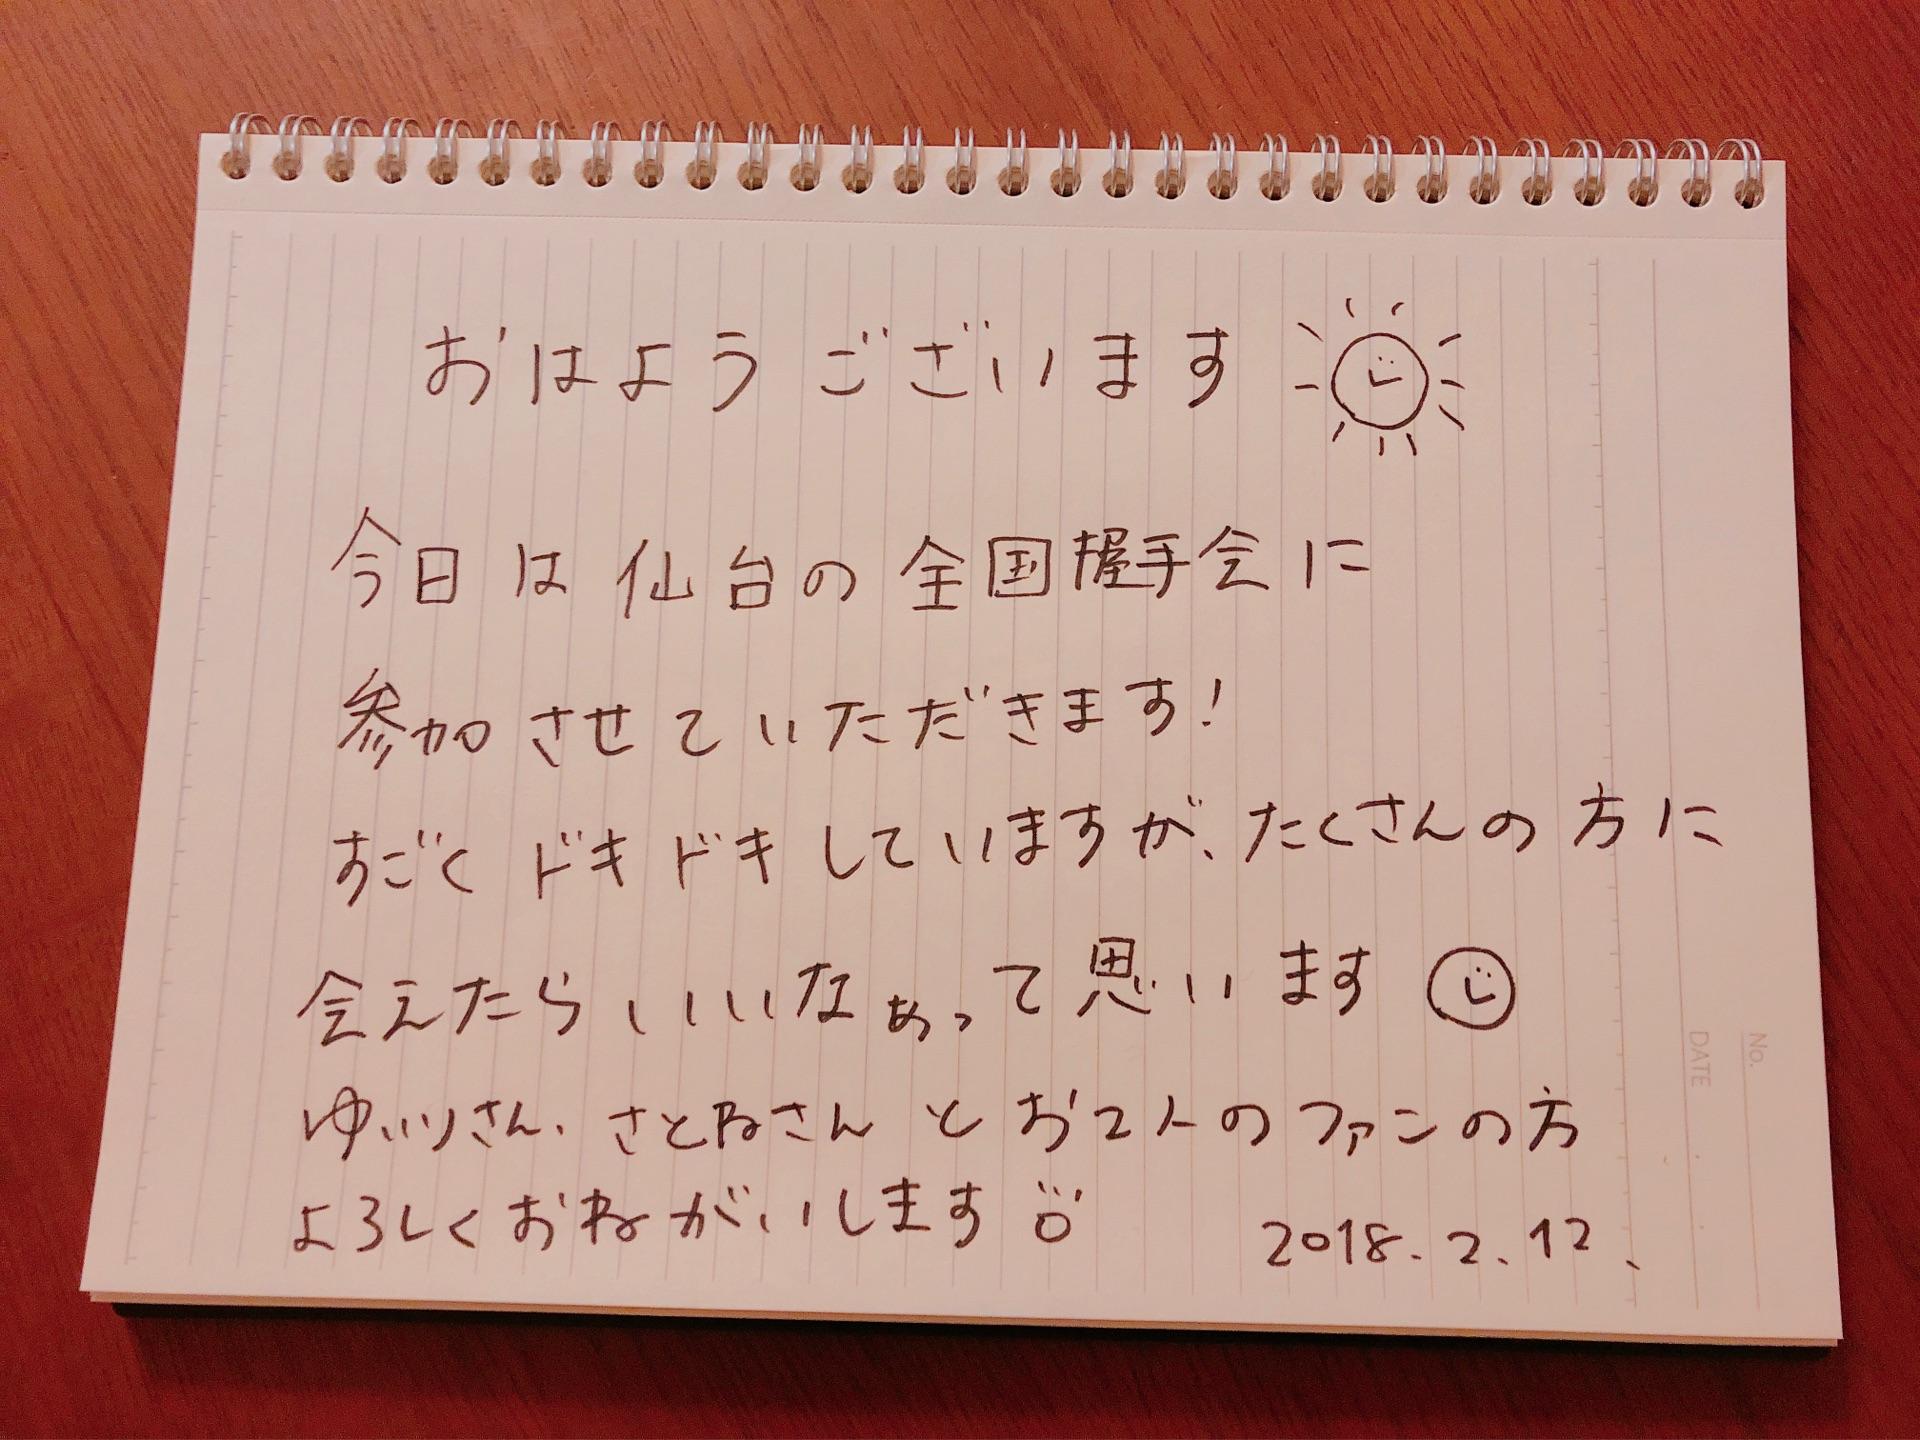 おはようございます
今日は仙台の全国握手会に
参加させていただきます!
すごくドキドキしていますが、たくさんの方に
会えたらいいなぁって思います
ゆいりさん、さとねさんとお2人のファンの方
よろしくおねがいします
2018.2.12.
No.
DATE